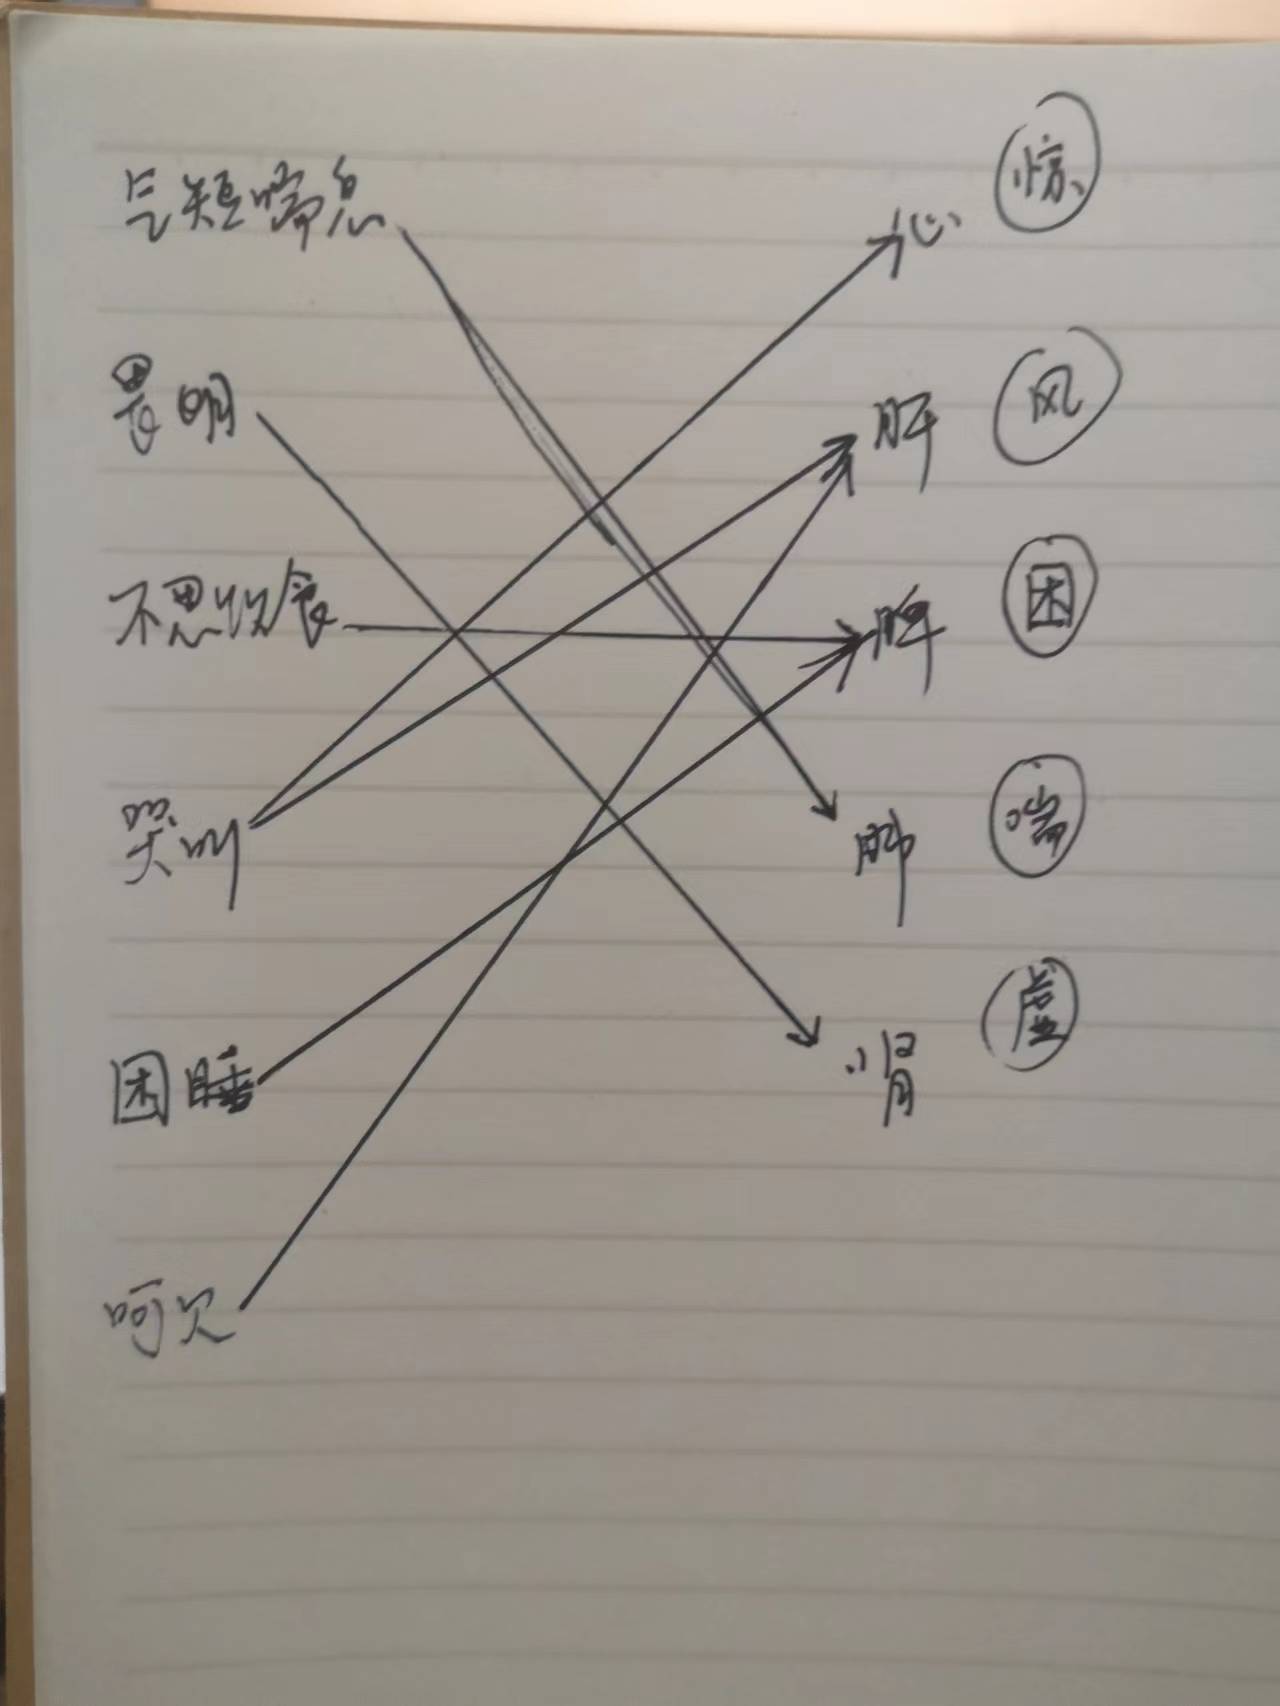 气短喘息
心 惊
畏明
肝 风
不思饮食
脾 困
哭叫
肺 喘
困睡
肾 虚
呵欠